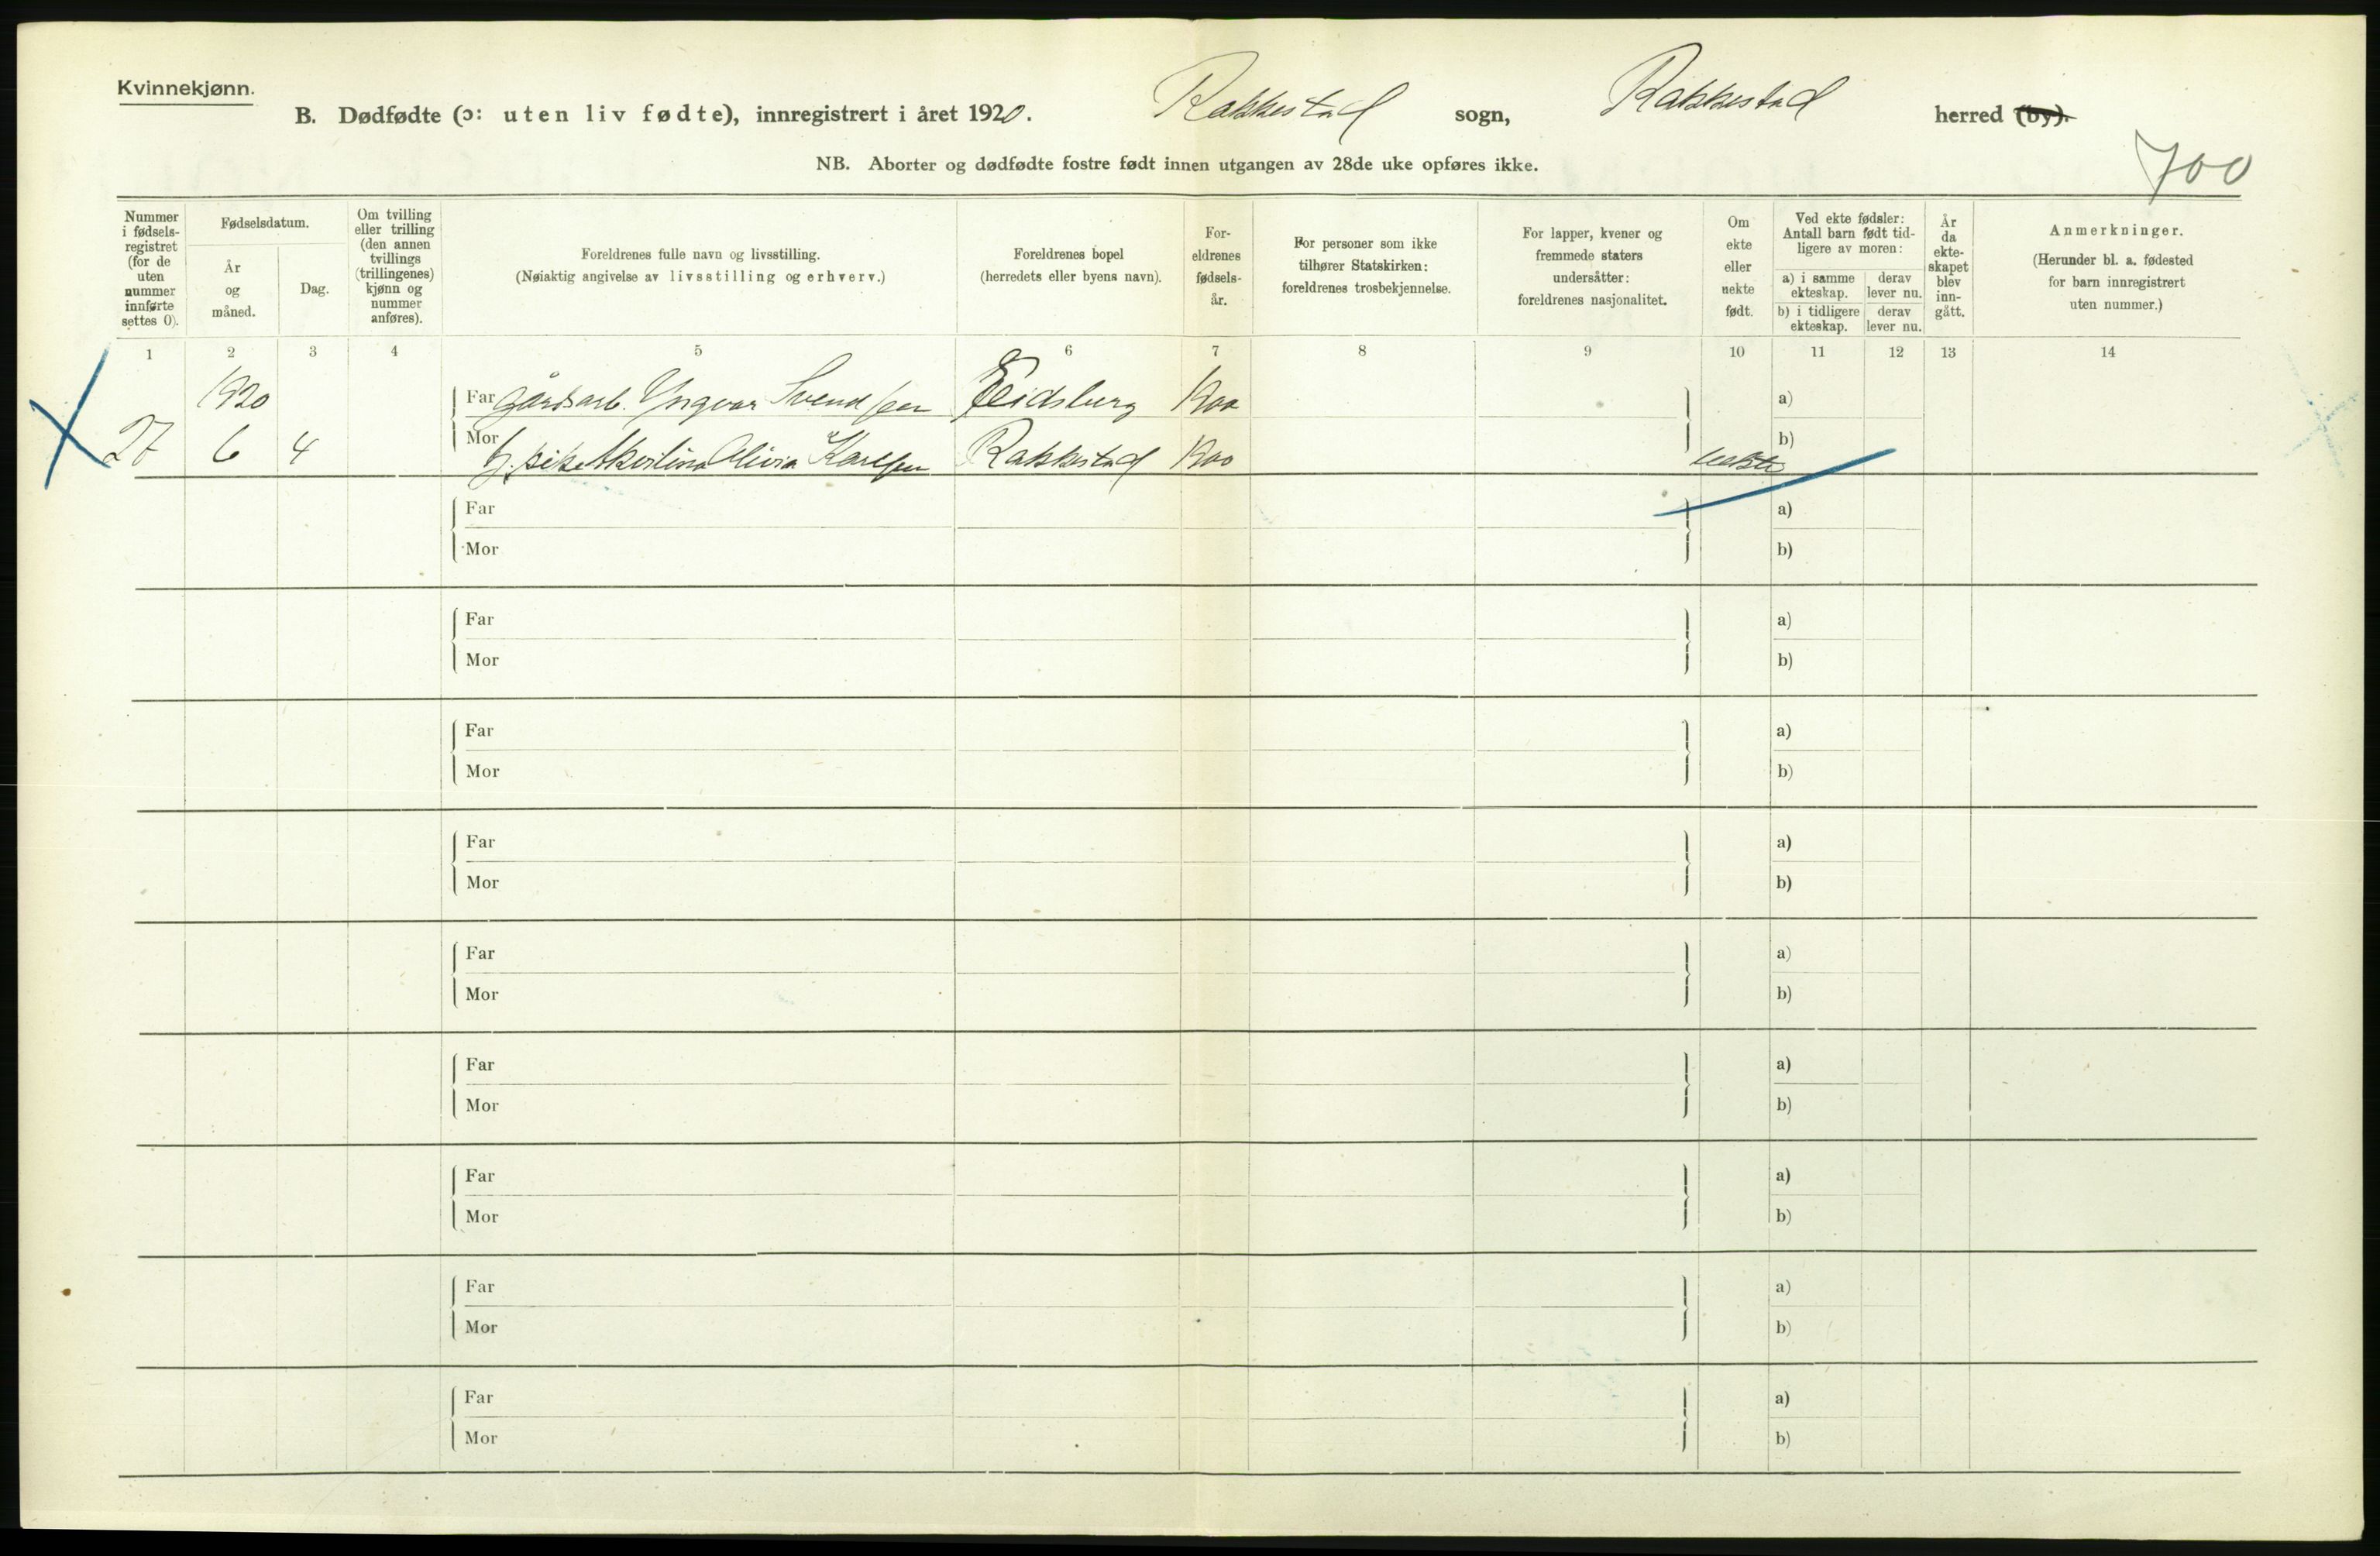 Kvinnekjønn.
B. Dødfødte (ɔ: uten liv fødte), innregistrert i året 1920. Rakkestad sogn, Rakkestad herred (by).
NB. Aborter og dødfødte fostre født innen utgangen av 28de uke opføres ikke.
700
Nummer i fødsels-registret (for de uten nummer innførte settes 0).
Fødselsdatum.
År og måned.
Dag.
Om tvilling eller trilling (den annen tvillings (trillingenes) kjønn og nummer anføres).
Foreldrenes fulle navn og livsstilling.
(Nøiaktig angivelse av livsstilling og erhverv.)
Foreldrenes bopel
(herredets eller byens navn).
For-eldrenes fødsels-år.
For personer som ikke tilhører Statskirken: foreldrenes trosbekjennelse.
For lapper, kvener og fremmede staters undersåtter: foreldrenes nasjonalitet.
Om ekte eller uekte født.
Ved ekte fødsler: Antall barn født tid-ligere av moren:
a) i samme ekteskap.
derav lever nu.
b) i tidligere ekteskap.
derav lever nu.
År da ekte-skapet blev inn-gått.
Anmerkninger.
(Herunder bl. a. fødested for barn innregistrert uten nummer.)
1 2 3 4 5 6 7 8 9 10 11 12 13 14
1920 Far gårdsarb. Yngvar Svendsen Eidsberg 1900 a)
27 6 4 Mor pike Olivia Karlsen Rakkestad 1900 uekte b)
Far a)
Mor b)
Far a)
Mor b)
Far a)
Mor b)
Far a)
Mor b)
Far a)
Mor b)
Far a)
Mor b)
Far a)
Mor b)
Far a)
Mor b)
Far a)
Mor b)